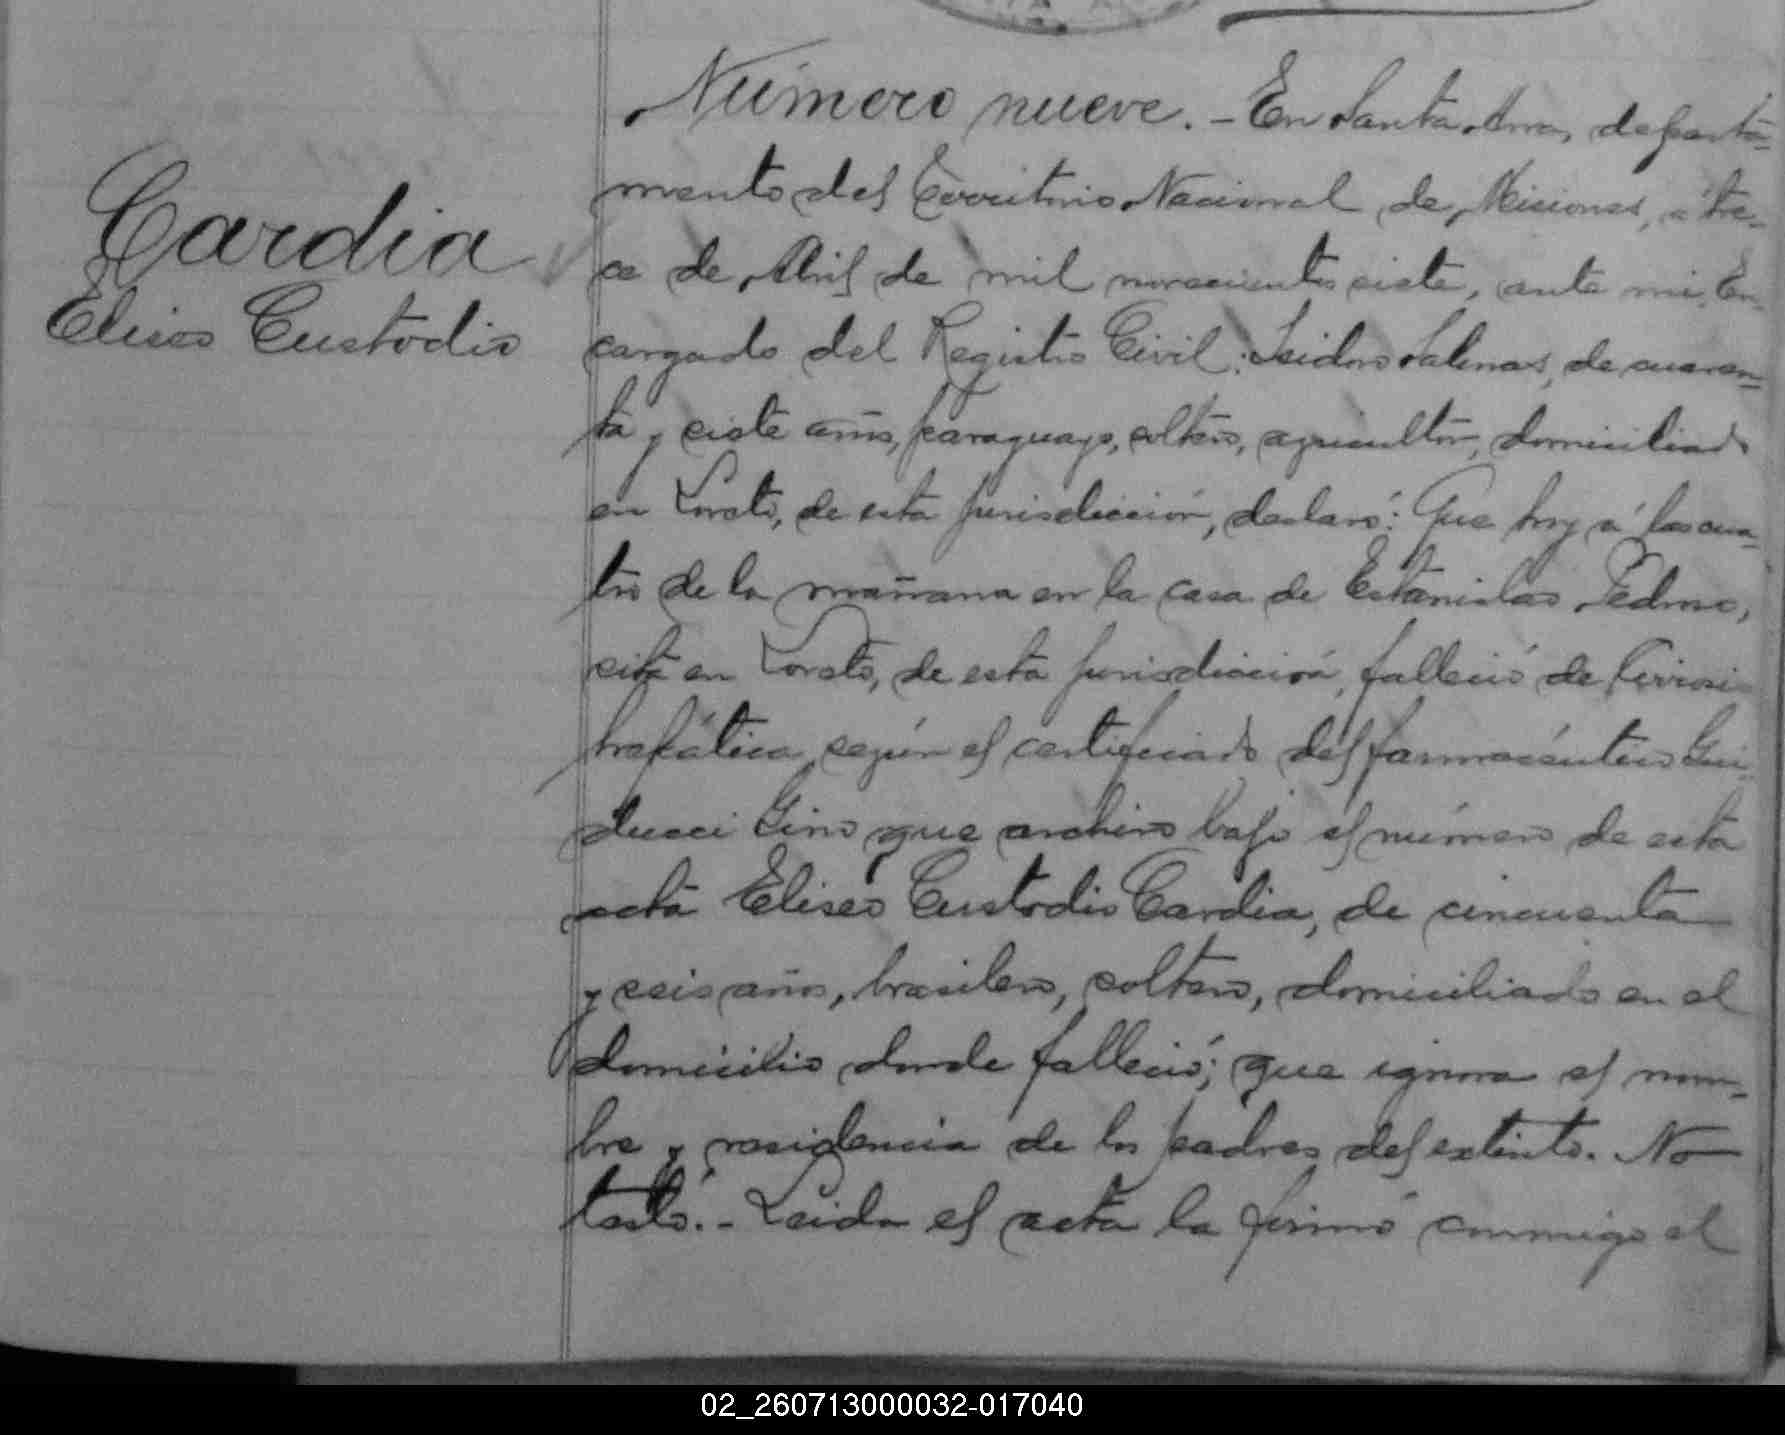 Número nueve. - En Santa Ana, departa-
mento del Territorio Nacional de Misiones, á tre-
ce de Abril de mil novecientos siete, ante mi, En-
cargado del Registro Civil: Isidoro Salinas, de cuaren-
ta y siete años, paraguayo, soltero, agricultor, domiciliado
en Loreto, de esta jurisdicción, declaró: Que hoy á las cua-
tro de la mañana en la casa de Estanislao Pedroso,
sita en Loreto, de esta jurisdicción, falleció de Cirrosis
hepática, según el certificado del farmacéutico Gui-
ducci Gino que archivo bajo el número de esta
acta Eliseo Custodio Cardia, de cincuenta
y seis años, brasilero, soltero, domiciliado en el
domicilio donde falleció; que ignora el nom-
bre y residencia de los padres del extinto. No
testó. - Leida el acta la firmó conmigo el
Cardia
Eliseo Custodio
02_260713000032-017040